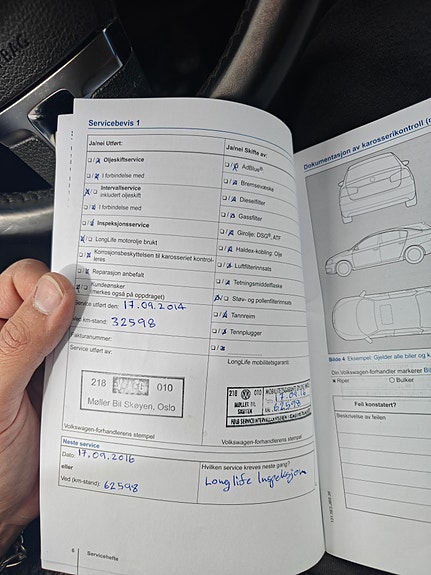 Servicebevis 1
Ja/nei Utført:
Oljeskiftservice
I forbindelse med
Intervallservice
inkludert oljeskift
I forbindelse med
Inspeksjonsservice
LongLife motorolje brukt
Korrosjonsbeskyttelsen til karosseriet kontrol-
leres
Reparasjon anbefalt
Kundeønsker
(merkes også på oppdraget)
Service utført den: 17.09.2014
Ved km-stand: 32598
Fakturanummer:
Service utført av:
218 010
Møller Bil Skøyen, Oslo
Volkswagen-forhandlerens stempel
Ja/nei Skifte av:
AdBlue®.
Bremsevæske
Dieselfilter
Gassfilter
Girolje: DSG®, ATF
Haldex-kobling: Olje
Luftfilterinnsats
Tetningsmiddelflaske
Støv- og pollenfilterinnsats
Tannreim
Tennplugger
LongLife mobilitetsgaranti:
218 010
MØLLER BIL
SKØYEN
17.09.16
62598
Volkswagen-forhandlerens stempel
Neste service
Dato: 17.09.2016
eller
Ved (km-stand): 62598
Hvilken service kreves neste gang?
Longlife Inspeksjon
6 Servicehefte
Dokumentasjon av karosserikontroll
Bilde 4 Eksempel: Gjelder alle biler og k
Din Volkswagen-forhandler markerer
Riper Bulker
Feil konstatert?
Beskrivelse av feilen